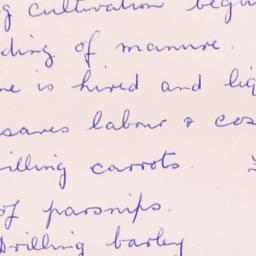 g cultivation begun
ding of manure.
ne is hired and liq
saves labour & cos
illing carrots.
of parsnips.
Drilling barley